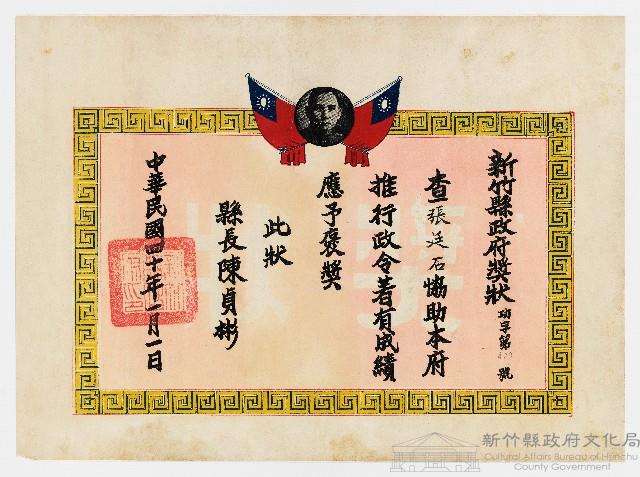 新竹縣政府獎狀 功字第 號
查張廷石協助本府
推行政令著有成績
應予褒獎
此狀
縣長陳貞彬
中華民國四十年一月一日
獎狀
新竹縣政府文化局
Cultural Affairs Bureau of Hsinchu
County Government